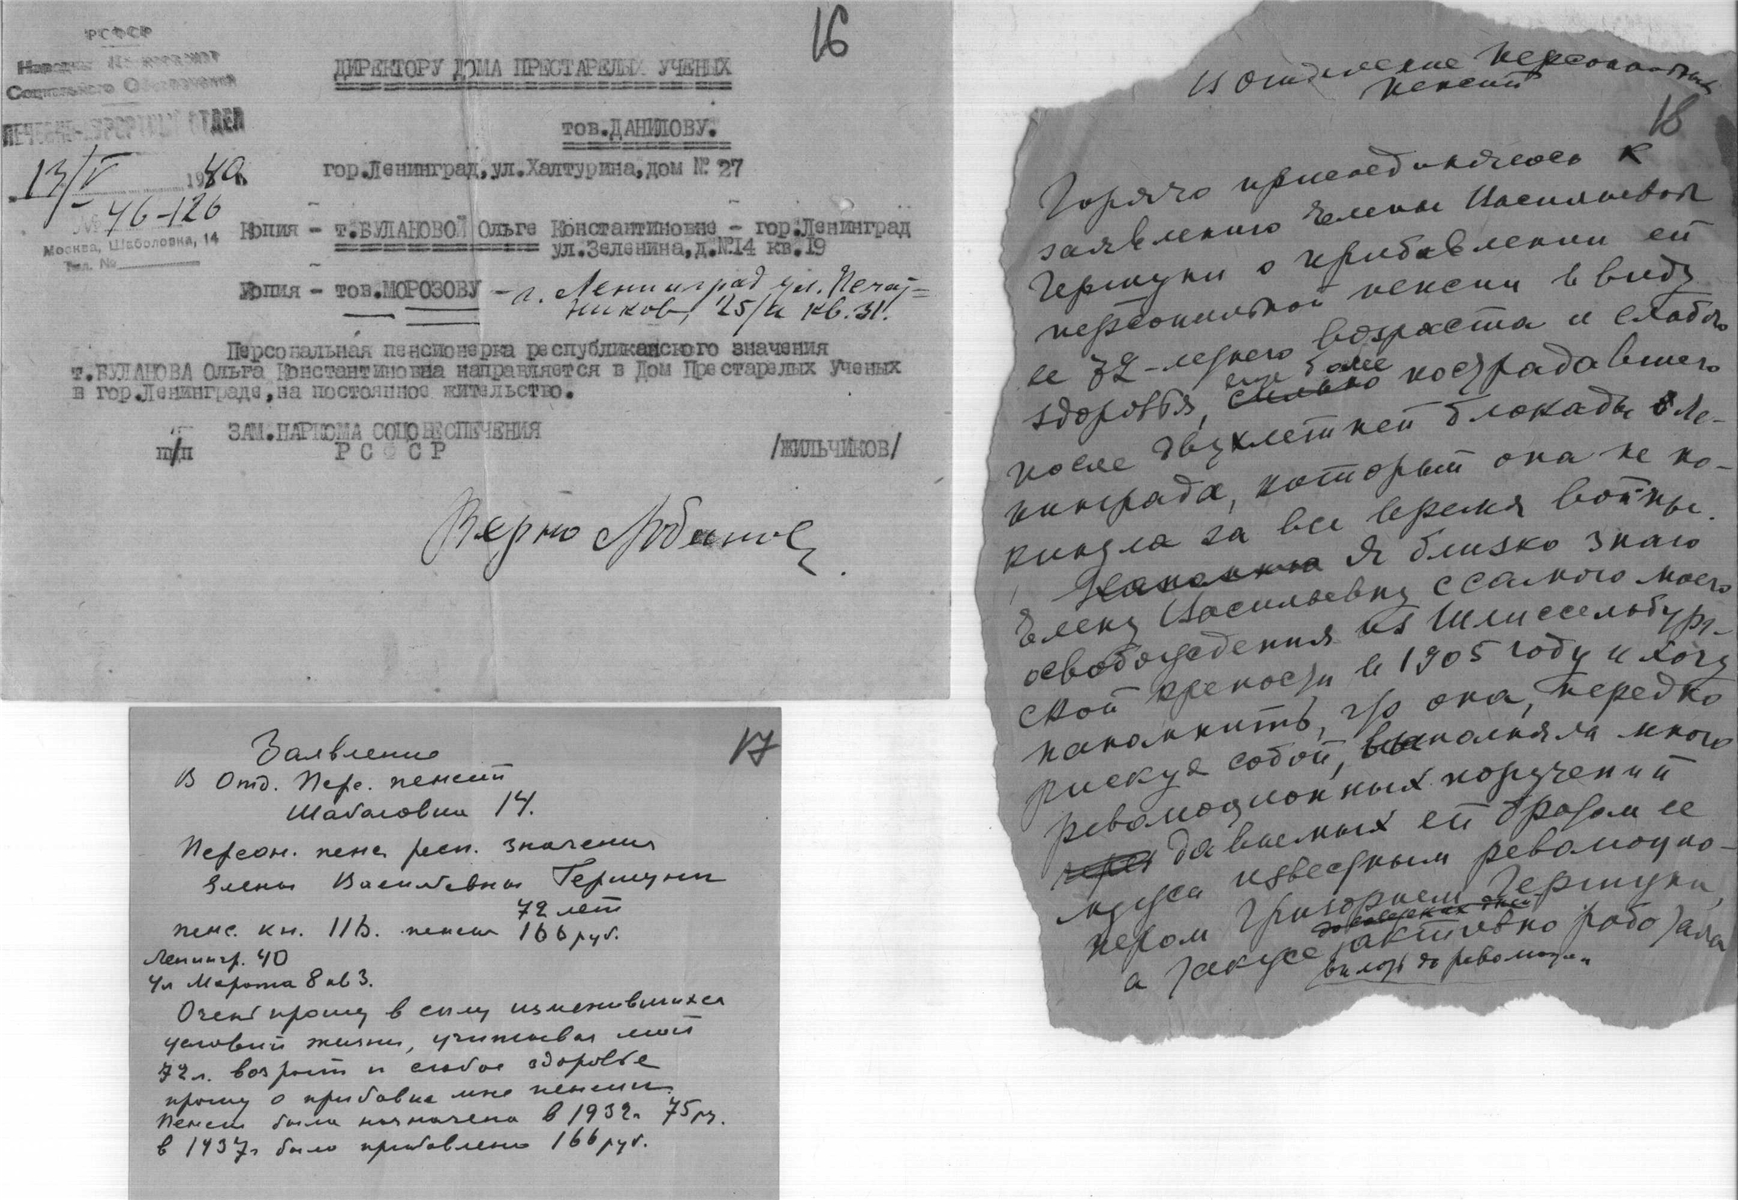 16
РСФСР
Социального Обеспечения
ЛЕЧЕБНО-КУРОРТНЫЙ ОТДЕЛ
13/V 1940.
№ 46-126
Москва, Шаболовка, 14
Тел. №
ДИРЕКТОРУ ДОМА ПРЕСТАРЕЛЫХ УЧЕНЫХ
тов.ДАНИЛОВУ.
гор.Ленинград,ул.Халтурина,дом № 27
Копия - т.БУЛАНОВОЙ Ольге Константиновне - гор.Ленинград
ул.Зеленина,д.№14 кв.19
Копия - тов.МОРОЗОВУ - г. Ленинград ул. Печат=
ников, 25/а кв. 31.
Персональная пенсионерка республиканского значения
т.БУЛАНОВА Ольга Константиновна направляется в Дом Престарелых Ученых
в гор.Ленинграде,на постоянное жительство.
ЗАМ.НАРКОМА СОЦОБЕСПЕЧЕНИЯ
п/п РСФСР /ЖИЛЬЧИКОВ/
Верно
17
Заявление
В Отд. Перс. пенсий
Шаболовка 14.
Персон. пенс. респ. значения
Елены Васильевны Гершуни
72 лет
пенс. кн. 11В. пенсия 166 руб.
Ленингр. 40
Ул Марата 8 кв 3.
Очень прошу в силу изменившихся
условий жизни, учитывая мой
72 л. возраст и слабое здоровье
прошу о прибавке мне пенсии.
Пенсия была назначена в 1932г. 75 р.
в 1937г было прибавлено 166 руб.
В отделение персональных
пенсий
18
Горячо присоединяюсь к
заявлению Елены Васильевны
Гершуни о прибавлении ей
персональной пенсии в виду
ее 72-летнего возраста и слабого
здоровья, сильно еще более пострадавшего
после двухлетней блокады Ле-
нинграда, который она не по-
кинула за все время войны.
Напомню Я близко знаю
Елену Васильевну с самого моего
освобождения из Шлиссельбург-
ской крепости в 1905 году и хочу
напомнить, что она, нередко
рискуя собой, выполняла много
революционных поручений
через даваемых ей братом ее
мужа известным революцио-
нером Григорием Гершуни,
а также активно работала
вплоть до революции